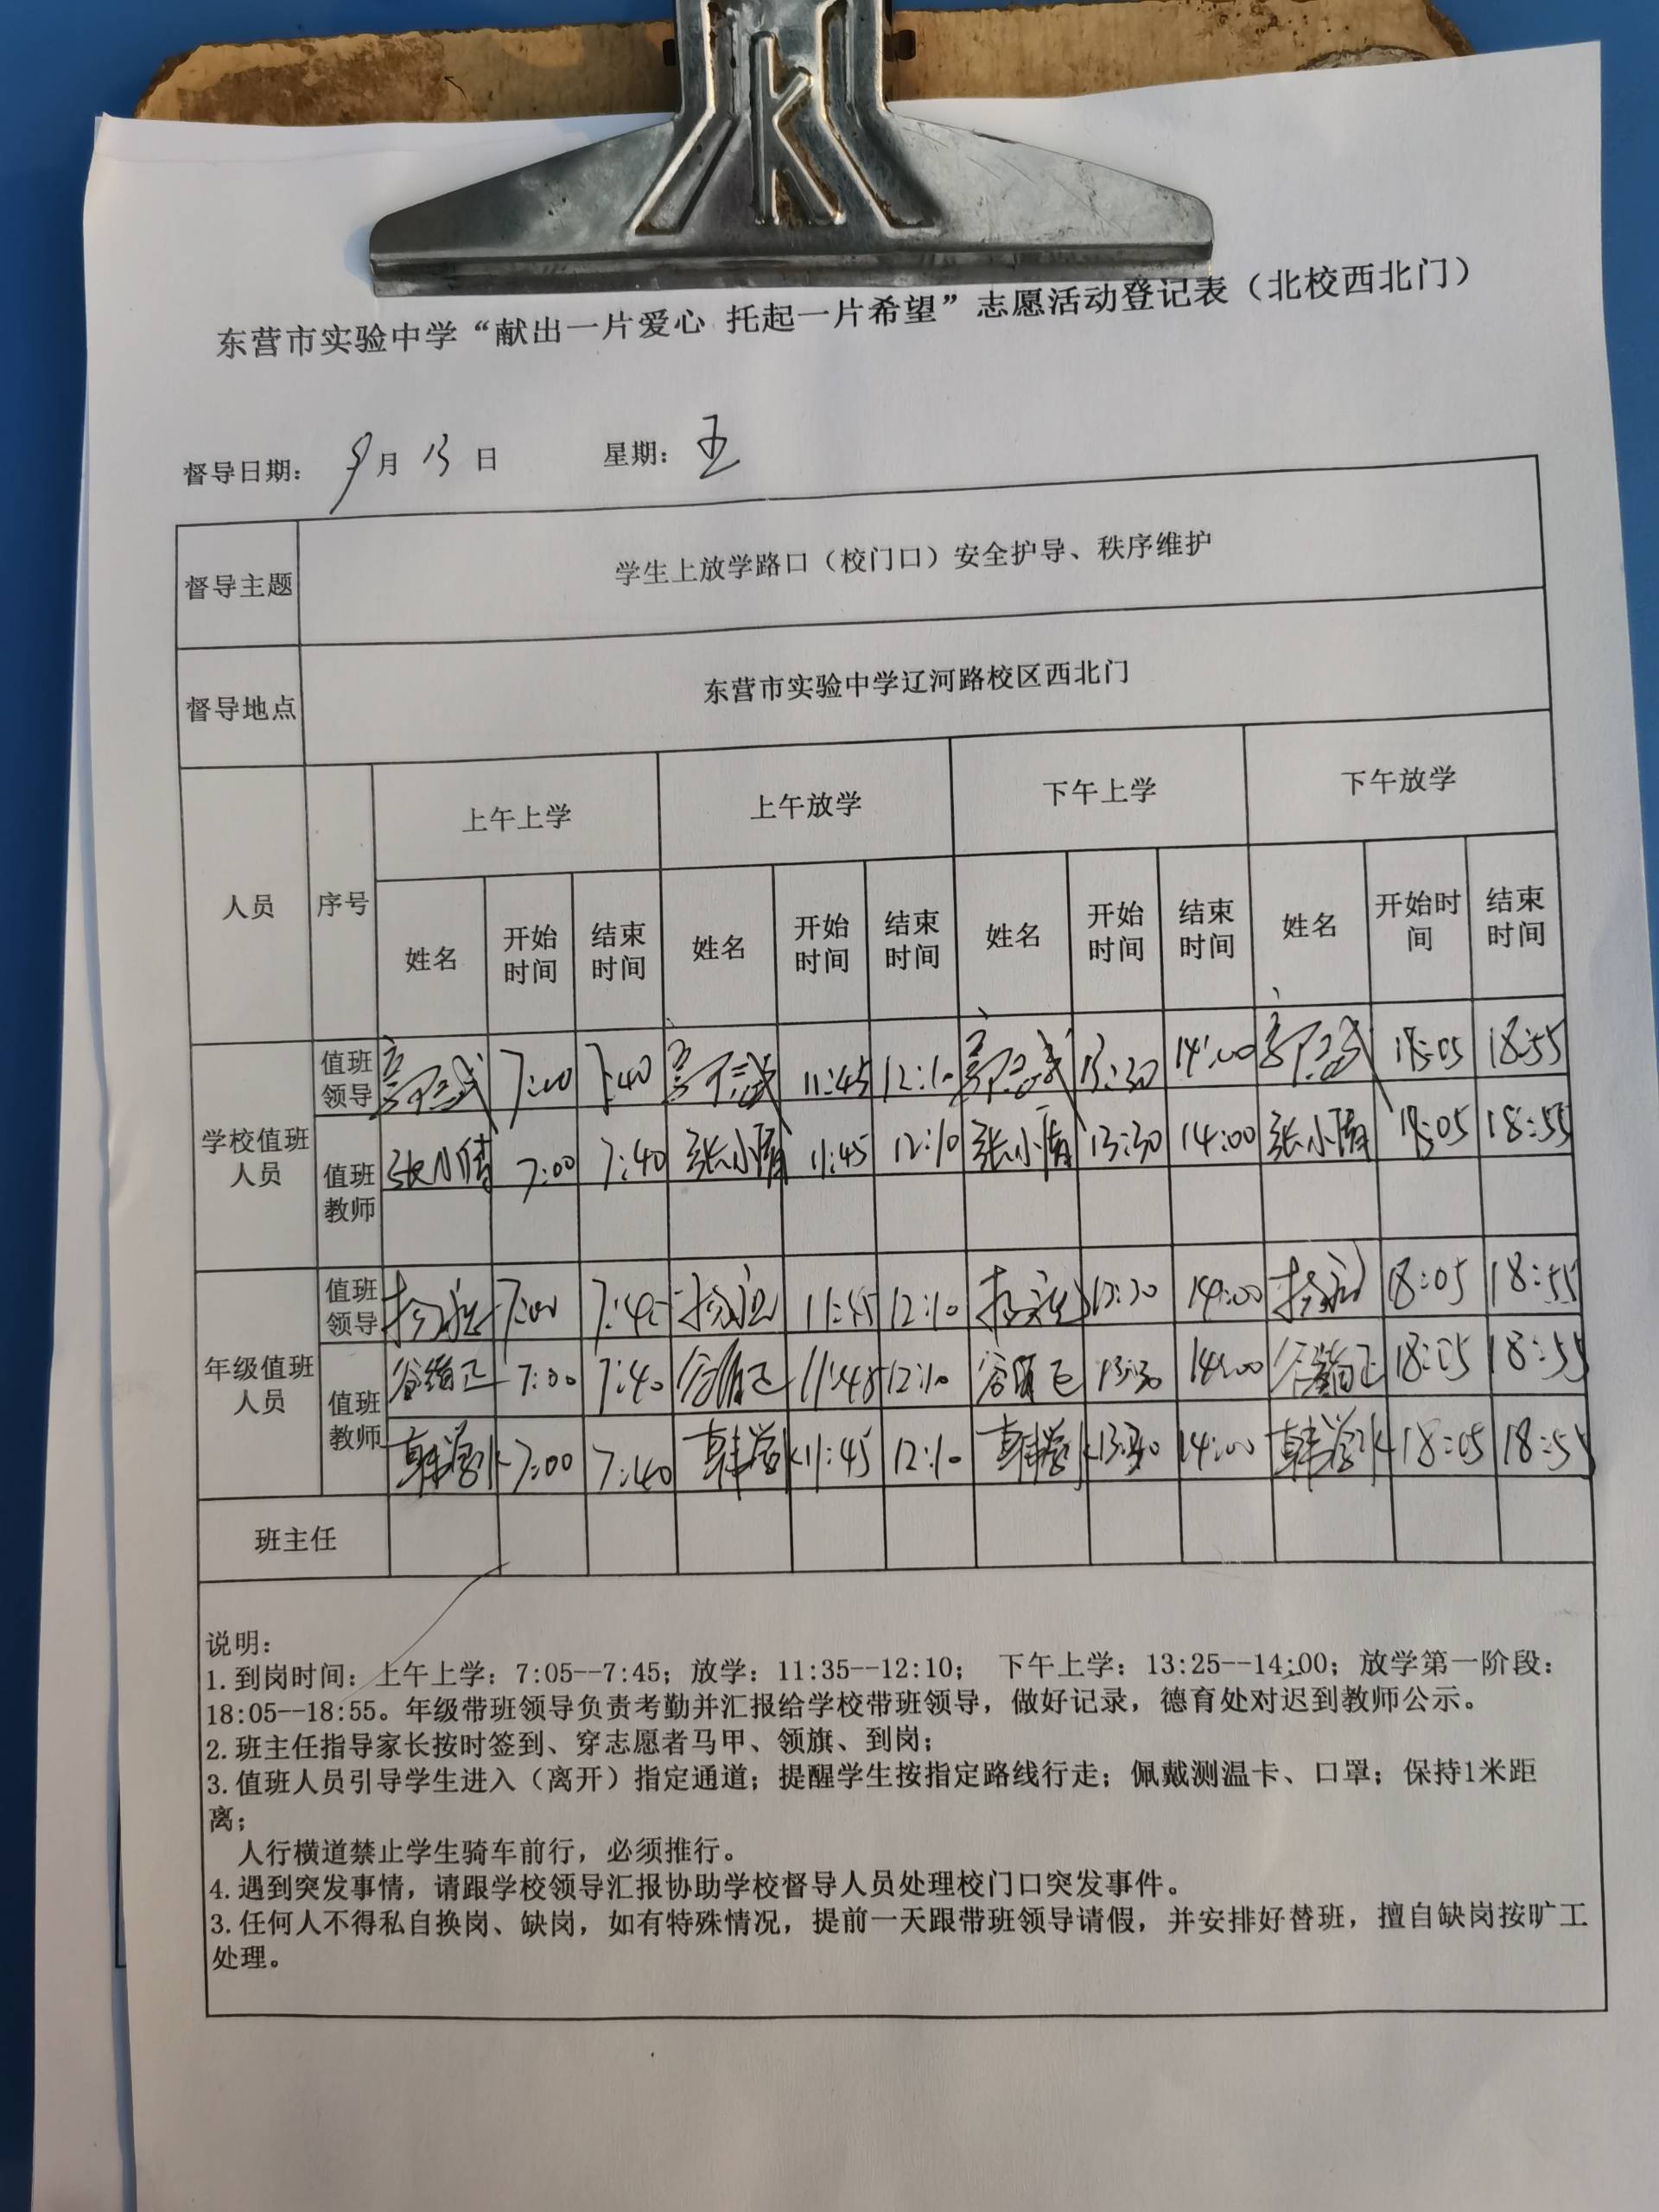 东营市实验中学“献出一片爱心 托起一片希望”志愿活动登记表（北校西北门）
督导日期： 9月13日 星期：五
督导主题 学生上放学路口（校门口）安全护导、秩序维护
督导地点 东营市实验中学辽河路校区西北门
人员 序号 上午上学 上午放学 下午上学 下午放学
姓名 开始时间 结束时间 姓名 开始时间 结束时间 姓名 开始时间 结束时间 姓名 开始时间 结束时间
学校值班人员 值班领导 7:00 7:40 11:45 12:10 13:30 14:00 18:05 18:55
值班教师 张小倩 7:00 7:40 张小倩 11:45 12:10 张小倩 13:30 14:00 张小倩 18:05 18:55
年级值班人员 值班领导 7:00 11:45 12:10 13:30 14:00 18:05 18:55
值班教师 7:00 7:40 11:45 12:10 13:30 14:00 18:05 18:55
7:00 7:40 11:45 12:10 14:00 18:05 18:55
班主任
说明：
1.到岗时间：上午上学：7:05--7:45；放学：11:35--12:10； 下午上学：13:25--14:00；放学第一阶段：
18:05--18:55。年级带班领导负责考勤并汇报给学校带班领导，做好记录，德育处对迟到教师公示。
2.班主任指导家长按时签到、穿志愿者马甲、领旗、到岗；
3.值班人员引导学生进入（离开）指定通道；提醒学生按指定路线行走；佩戴测温卡、口罩；保持1米距
离；
人行横道禁止学生骑车前行，必须推行。
4.遇到突发事情，请跟学校领导汇报协助学校督导人员处理校门口突发事件。
3.任何人不得私自换岗、缺岗，如有特殊情况，提前一天跟带班领导请假，并安排好替班，擅自缺岗按旷工
处理。